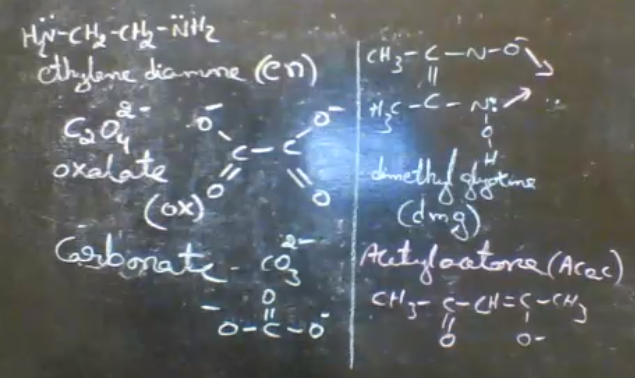 H₂N̈-CH₂-CH₂-N̈H₂
ethylene diamine (en)
C₂O₄²⁻
oxalate
(ox)
O⁻ O⁻
C-C
O O
Carbonate - CO₃²⁻
O
||
⁻O-C-O⁻
CH₃-C-N-O⁻
||
H₃C-C-N:
O
H
dimethyl glyoxime
(dmg)
Acetylacetone (Acac)
CH₃-C-CH=C-CH₃
O O-